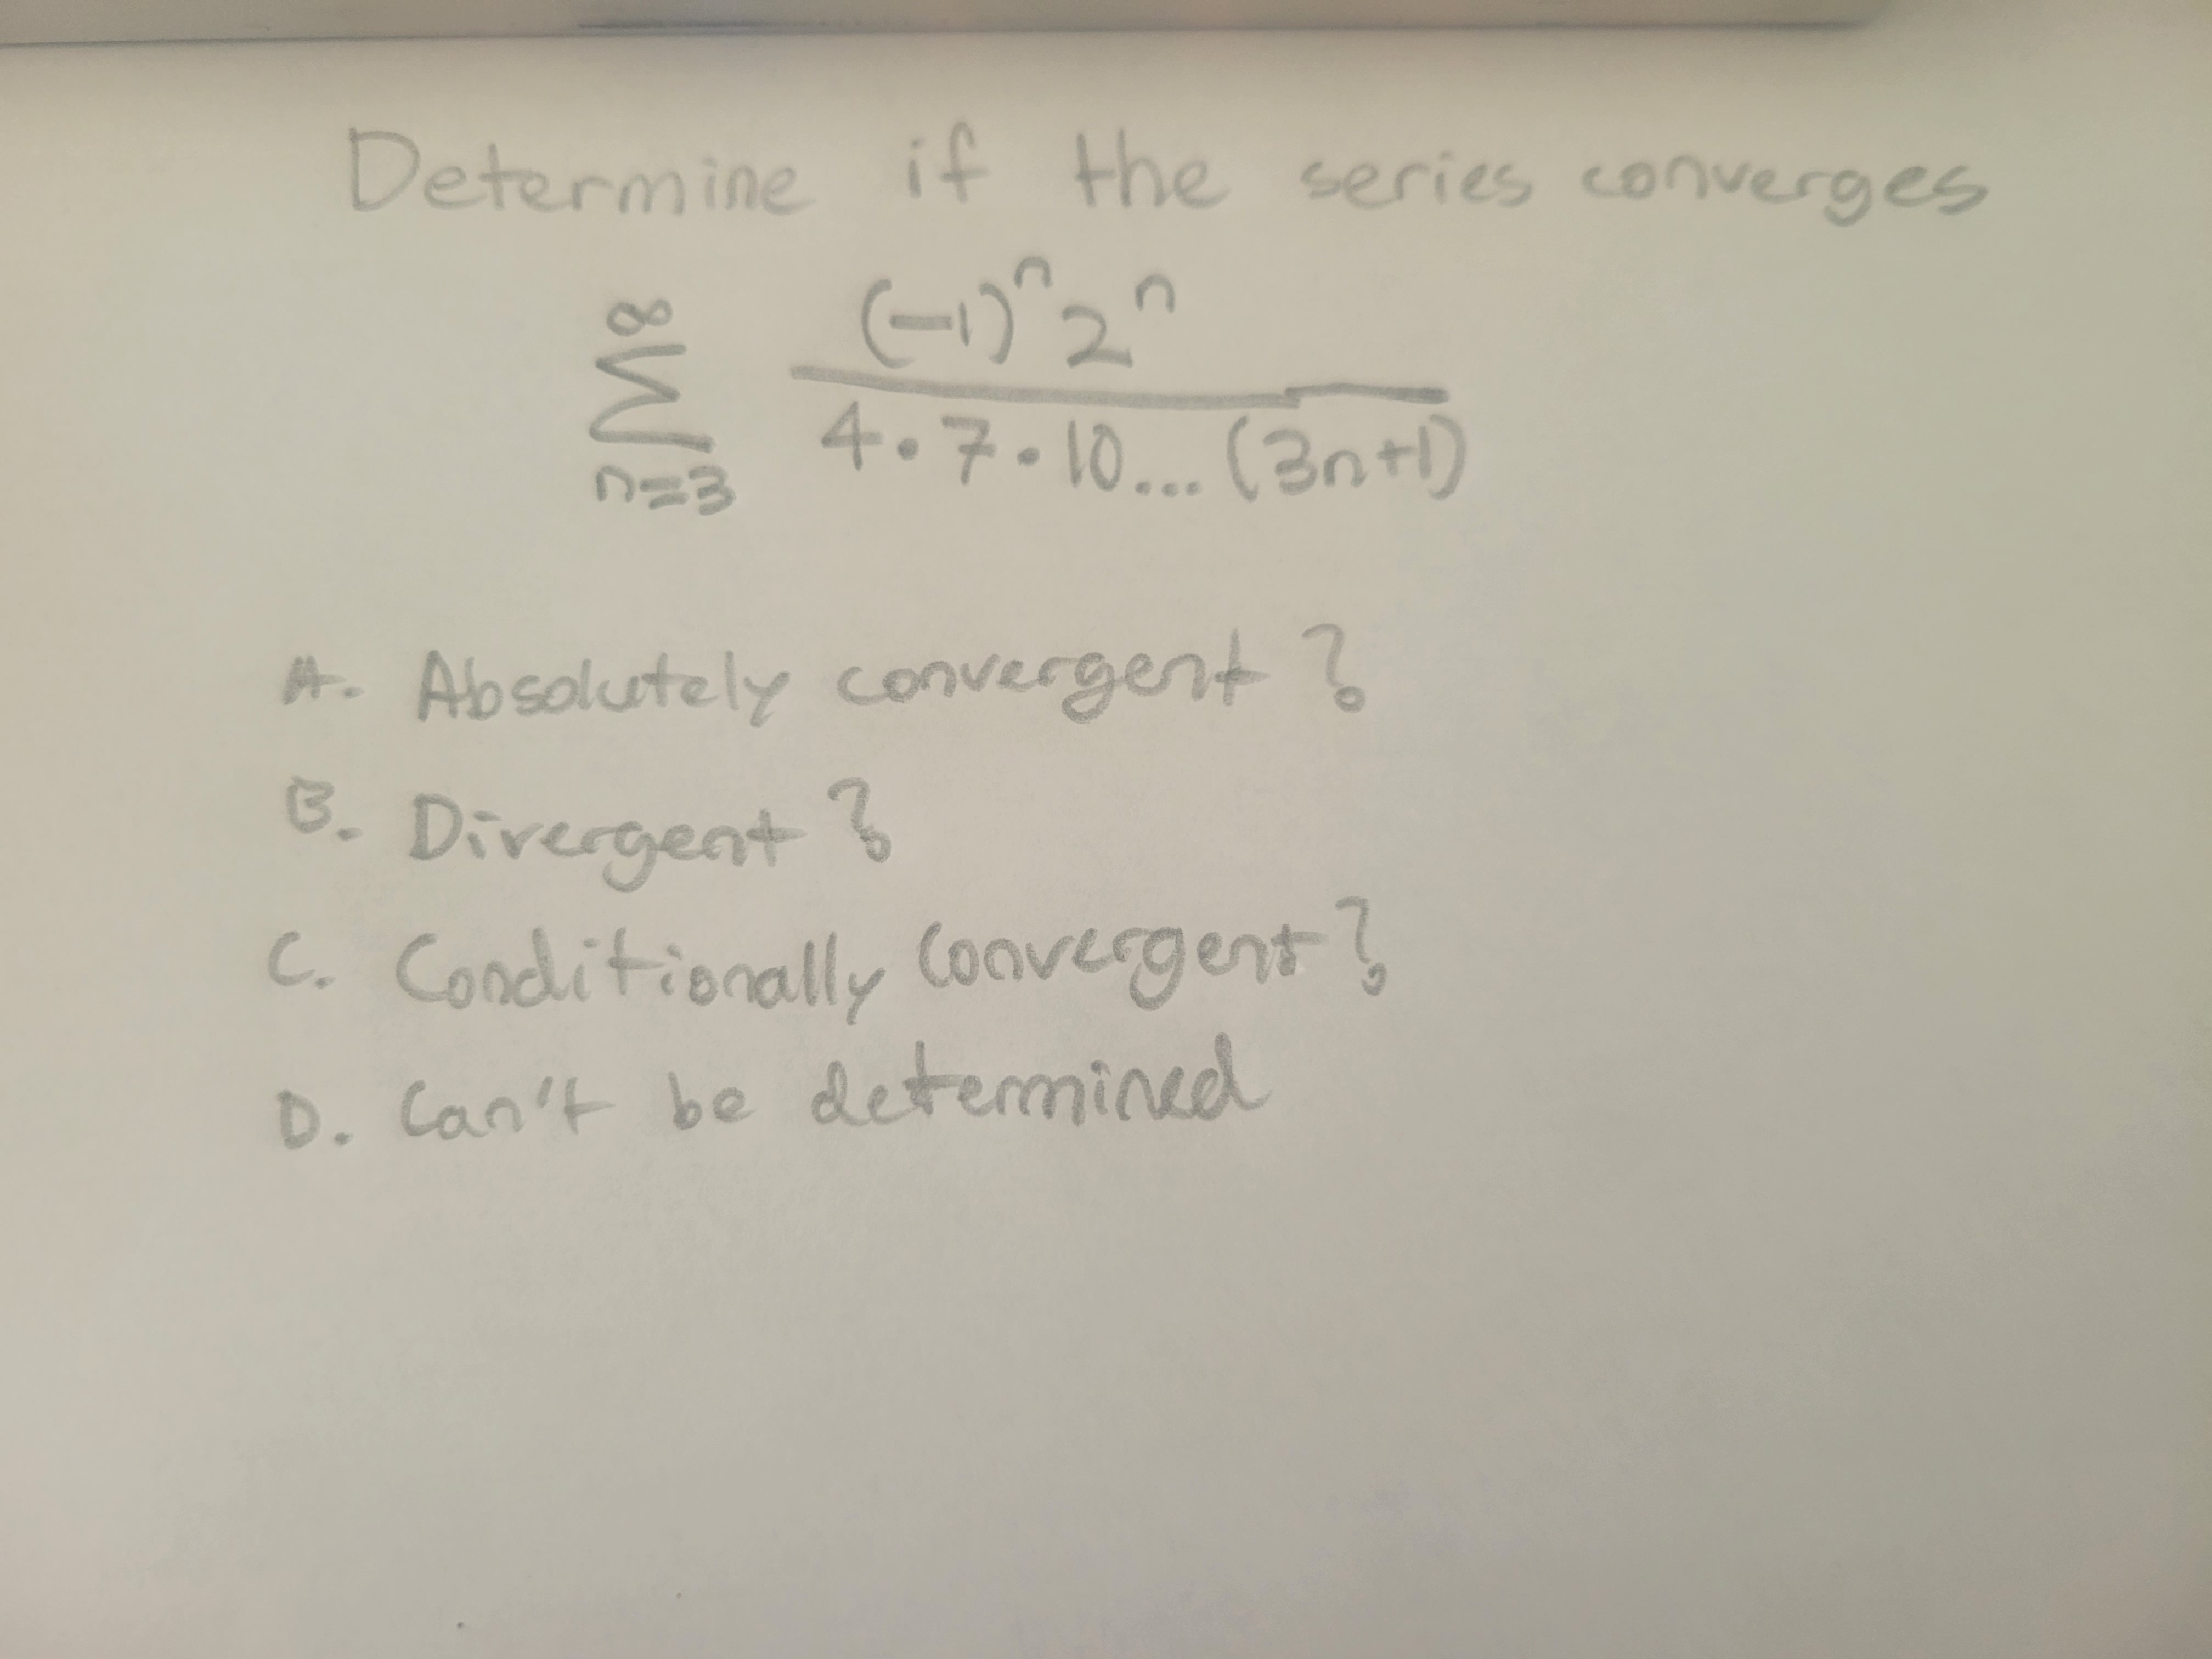 Determine if the series converges
∞ (-1)^n 2^n
Σ ―――――――――
n=3 4·7·10...(3n+1)
A. Absolutely convergent?
B. Divergent?
C. Conditionally Convergent?
D. Can't be determined